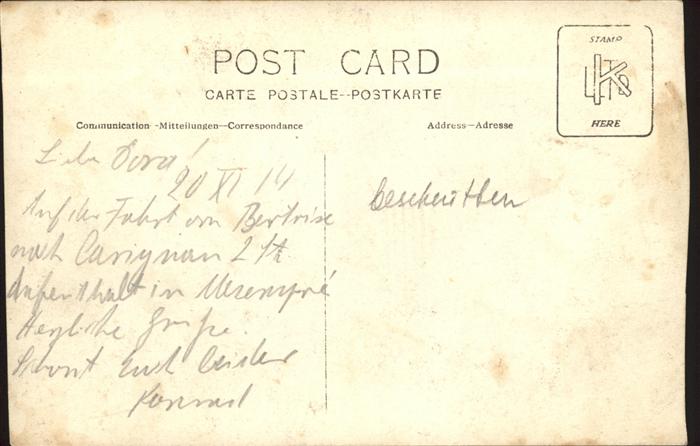 POST CARD
CARTE POSTALE--POSTKARTE
Communication -Mitteilungen—Correspondance
Address—Adresse
STAMP
HERE
Liebe Dora!
20 XI 14
Auf der Fahrt von Bertrise
nach Carignan 2 St
Aufenthalt in Messempré
Herzliche Grüße.
Euch
Konrad